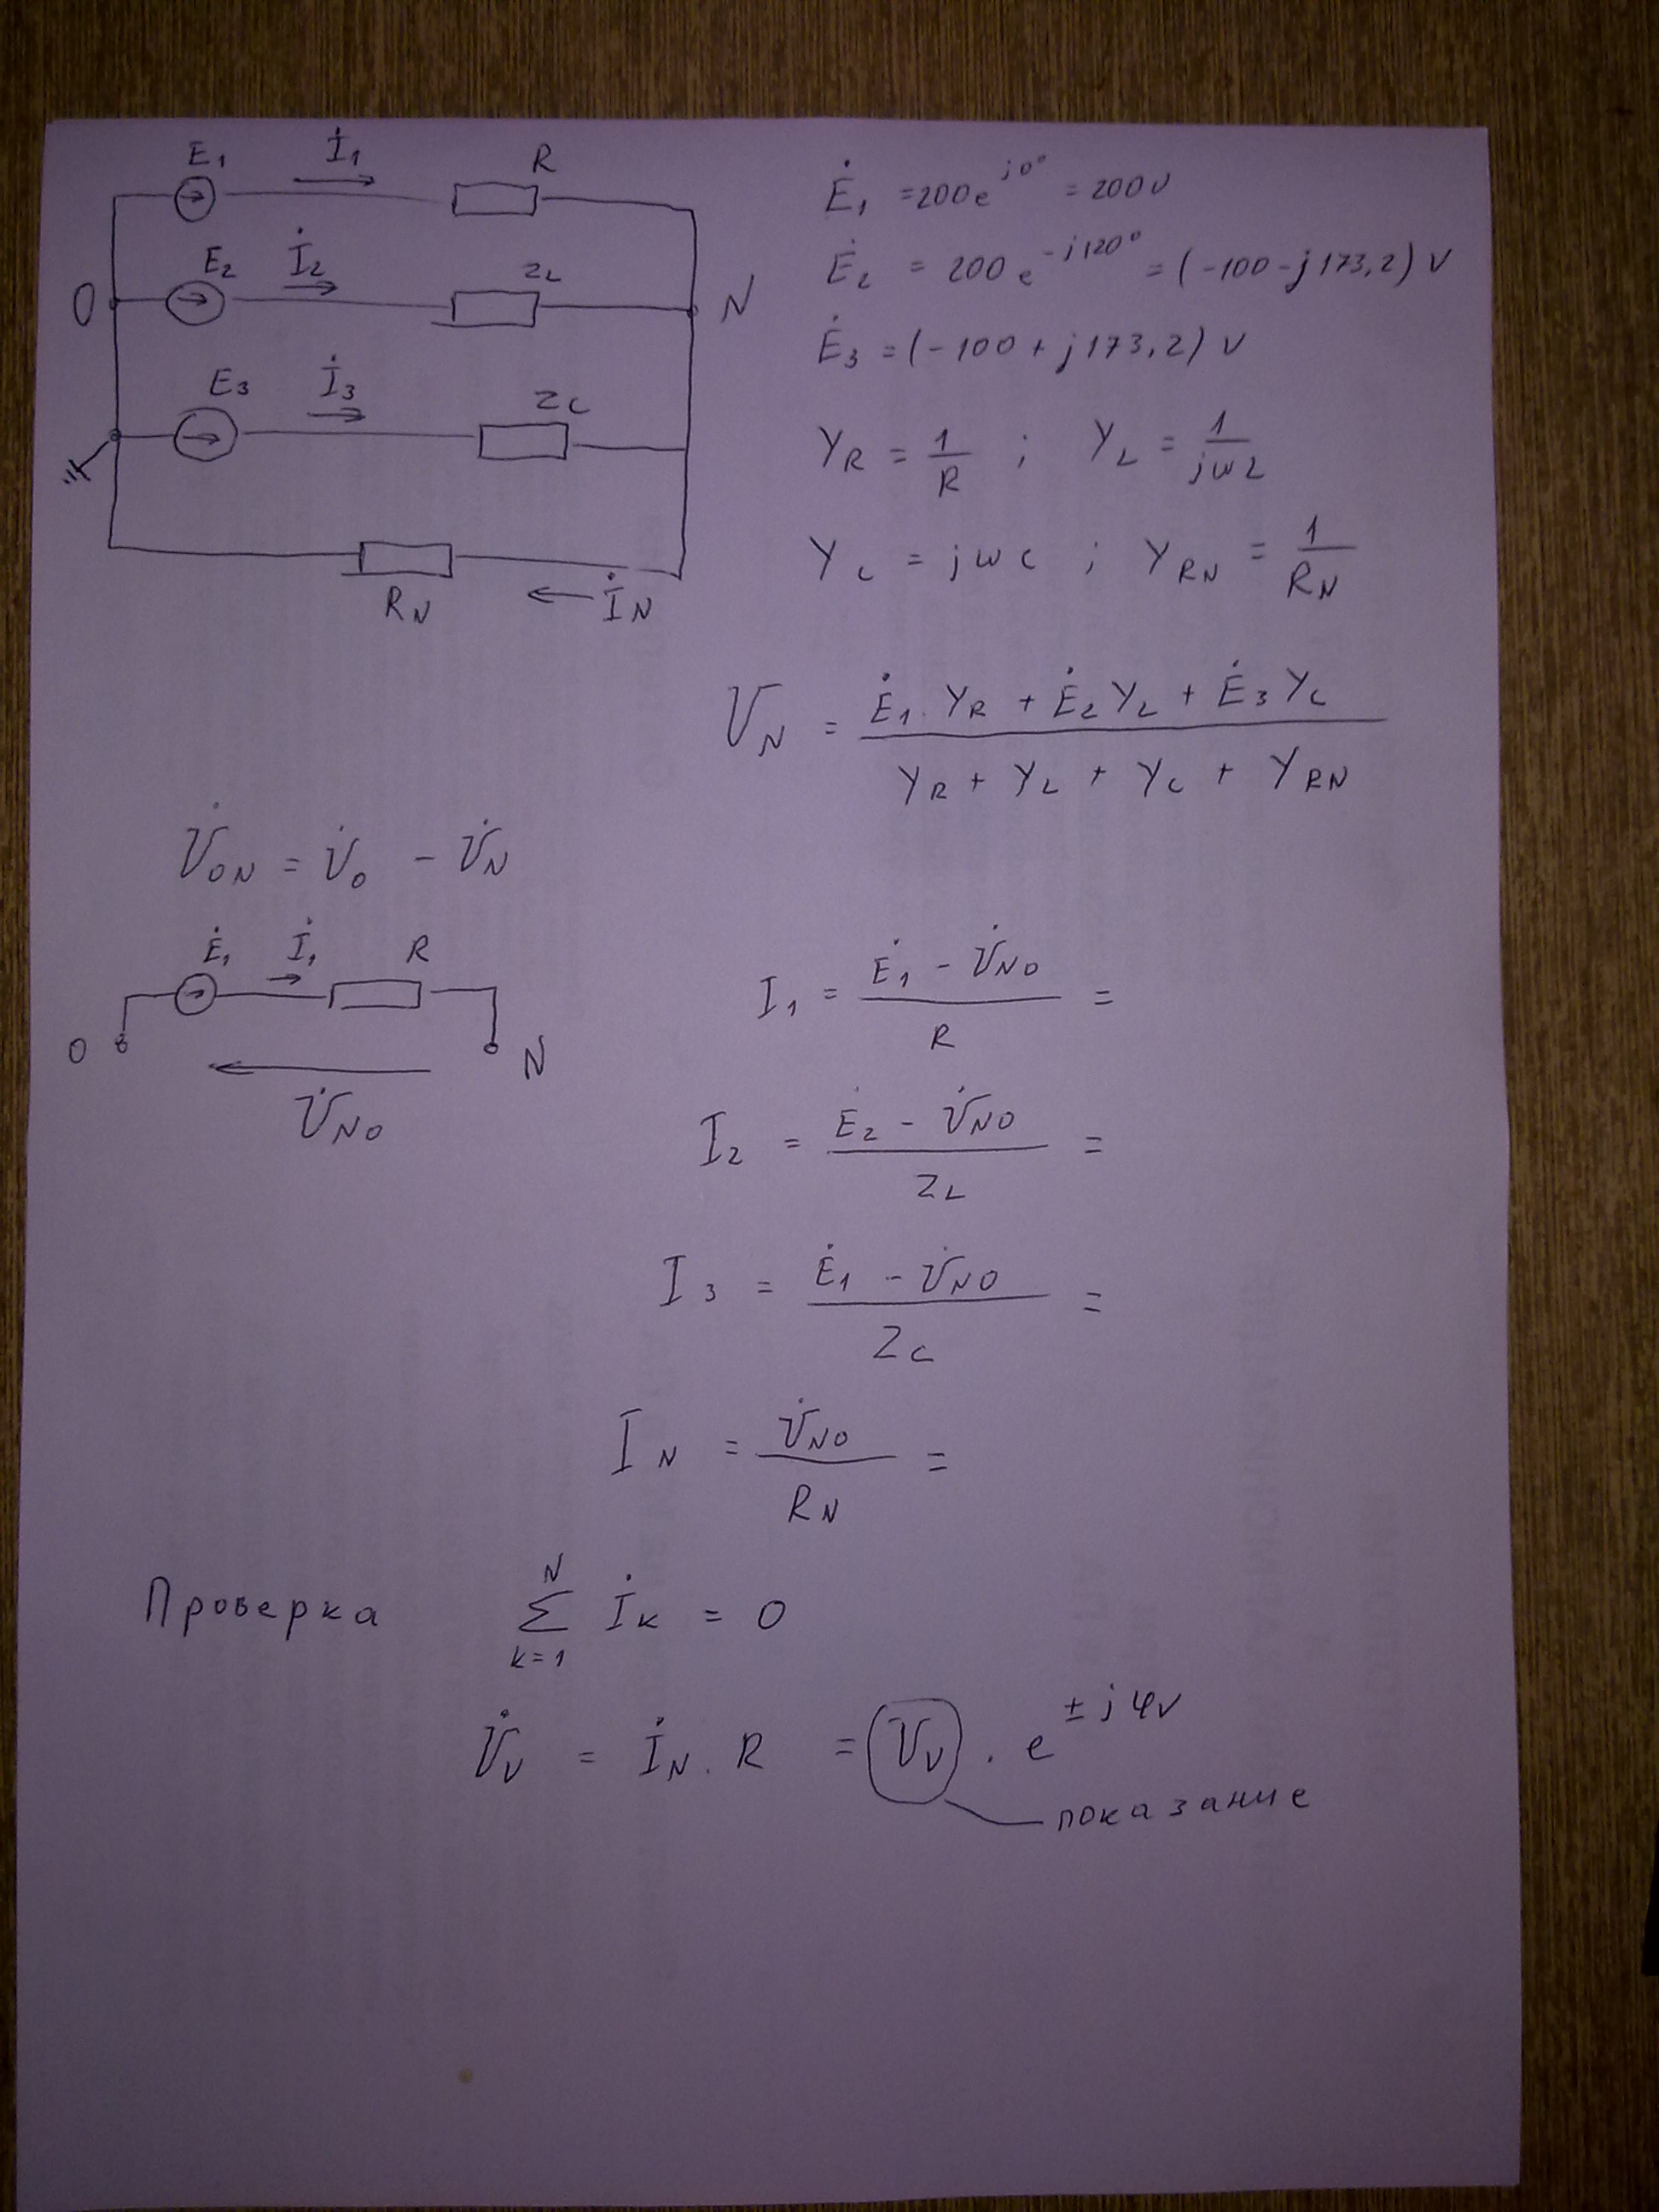 E₁ İ₁ R
E₂ İ₂ Z_L
O N
E₃ İ₃ Z_C
R_N İ_N
Ė₁ = 200 e^{j0°} = 200 V
Ė₂ = 200 e^{-j120°} = (-100 - j173,2) V
Ė₃ = (-100 + j173,2) V
Y_R = 1/R ; Y_L = 1/(jωL)
Y_C = jωC ; Y_RN = 1/R_N
V_N = (Ė₁ · Y_R + Ė₂ Y_L + Ė₃ Y_C) / (Y_R + Y_L + Y_C + Y_RN)
V̇_ON = V̇_O - V̇_N
Ė₁ İ₁ R
O N
V̇_NO
I₁ = (Ė₁ - V̇_NO) / R =
I₂ = (Ė₂ - V̇_NO) / Z_L =
I₃ = (Ė₁ - V̇_NO) / Z_C =
I_N = V̇_NO / R_N =
Проверка ∑_{k=1}^{N} İ_k = 0
V̇_V = İ_N · R = V_V · e^{±jφv}
показание